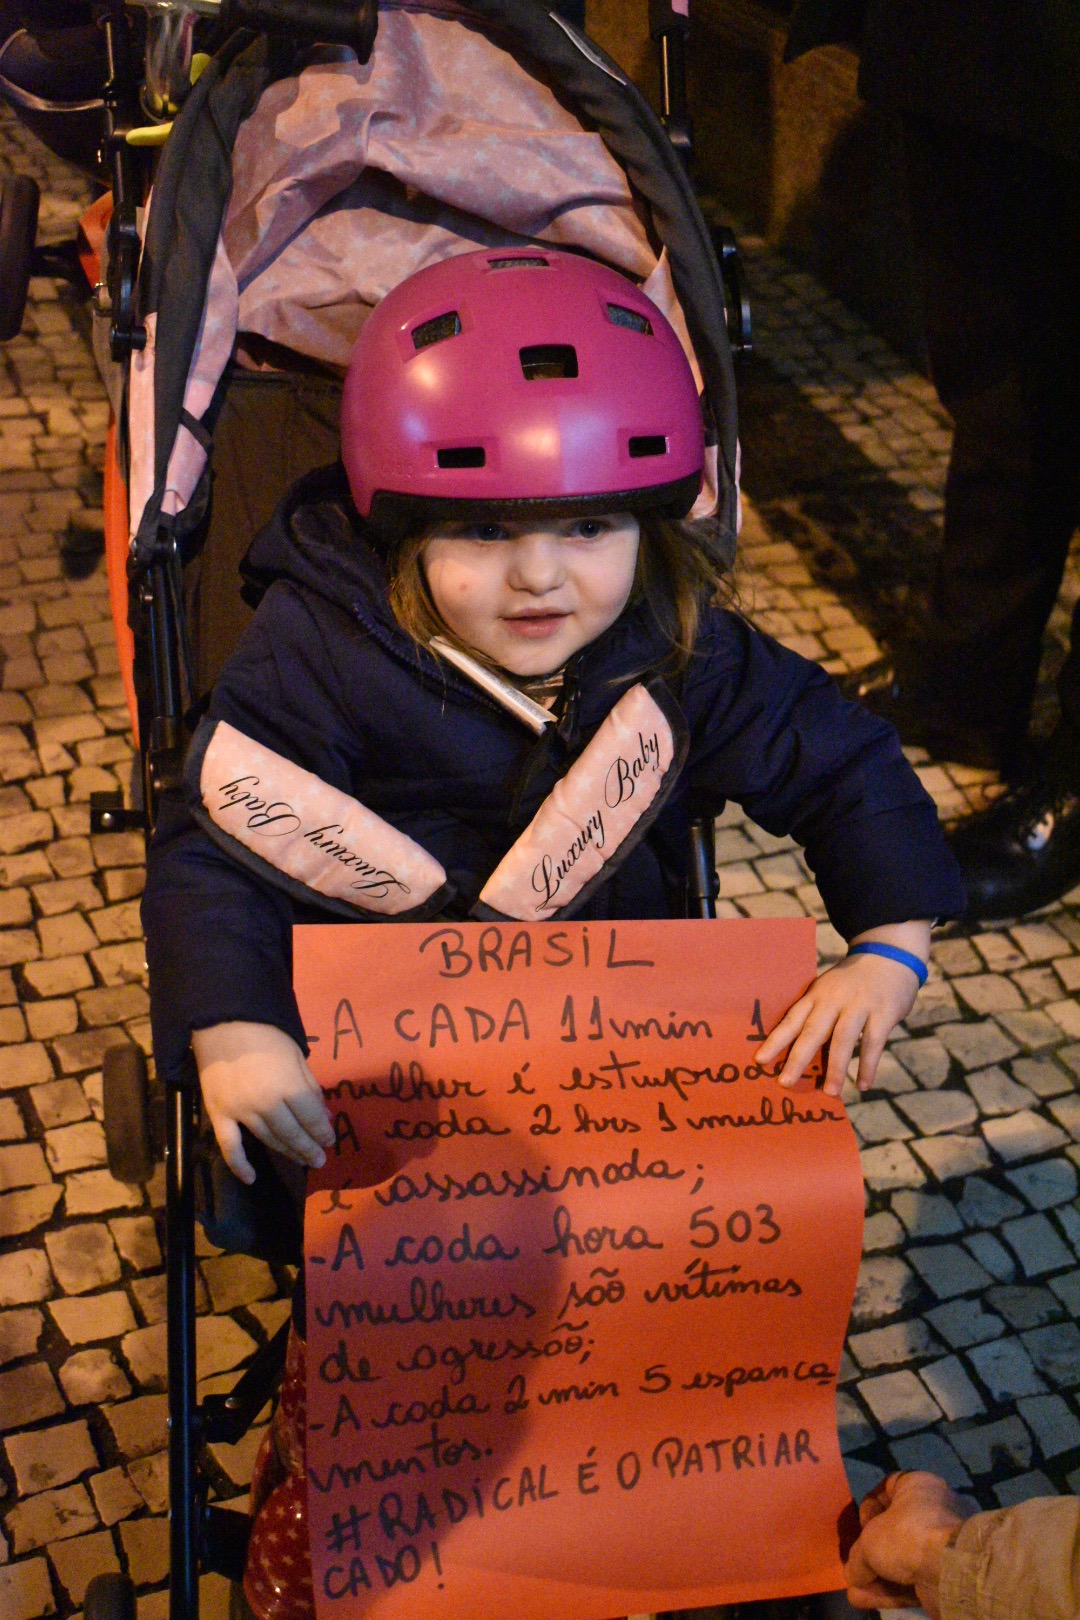 Luxury Baby
Luxury Baby
BRASIL
-A CADA 11 min 1
mulher é estuprada;
-A cada 2 hrs 1 mulher
é assassinada;
-A cada hora 503
mulheres são vítimas
de agressão;
-A cada 2 min 5 espanca
mentos.
#RADICAL É O PATRIAR
CADO!